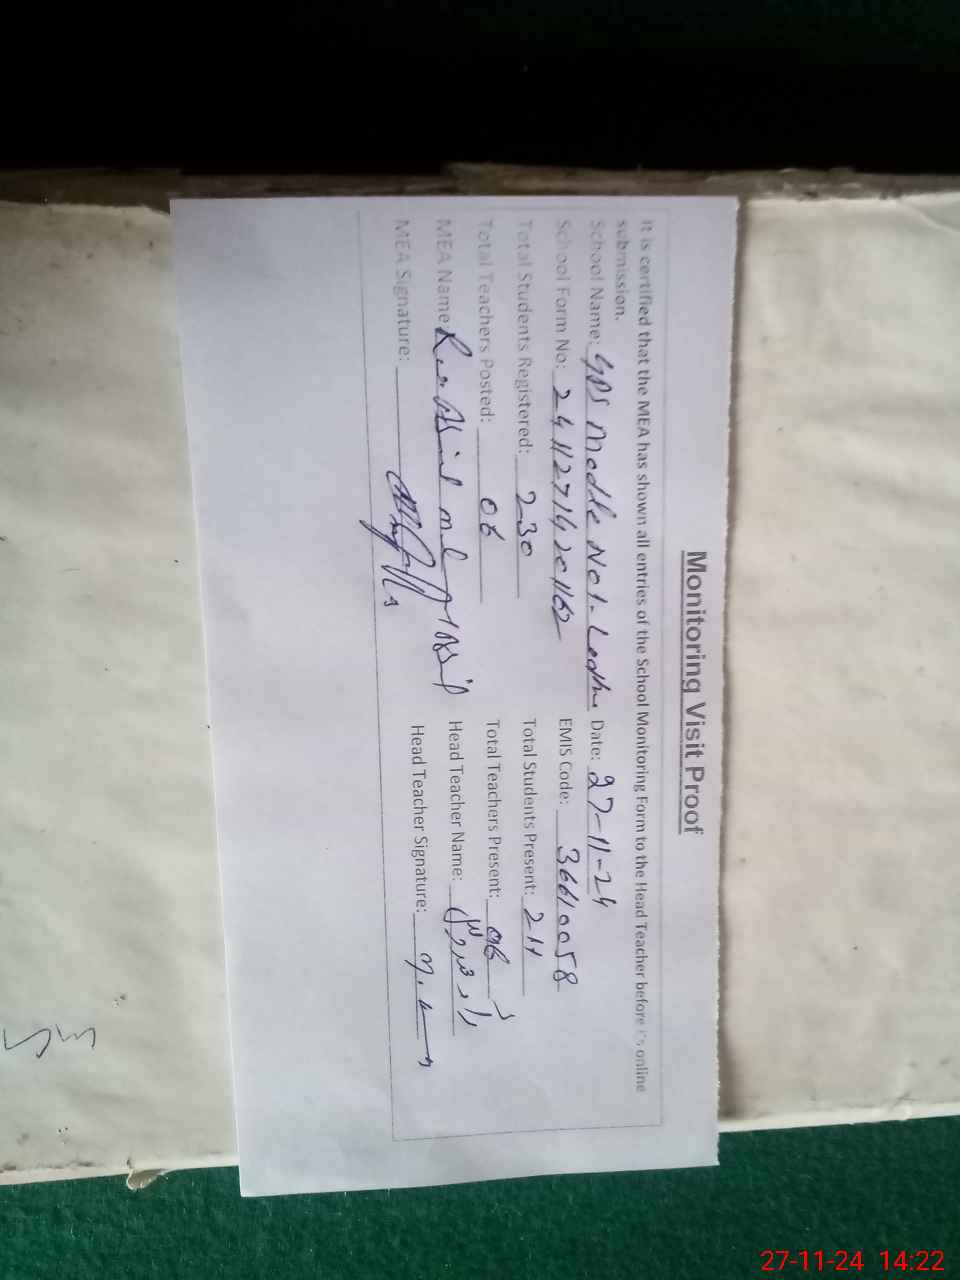 Monitoring Visit Proof
It is certified that the MEA has shown all entries of the School Monitoring Form to the Head Teacher before it's online
submission.
School Name: GPS Modle No1. Date: 27-11-24
School Form No: 24112714201162 EMIS Code: 36610058
Total Students Registered: 230 Total Students Present: 211
Total Teachers Posted: 06 Total Teachers Present: 06
MEA Name Head Teacher Name:
MEA Signature: Head Teacher Signature:
27-11-24 14:22